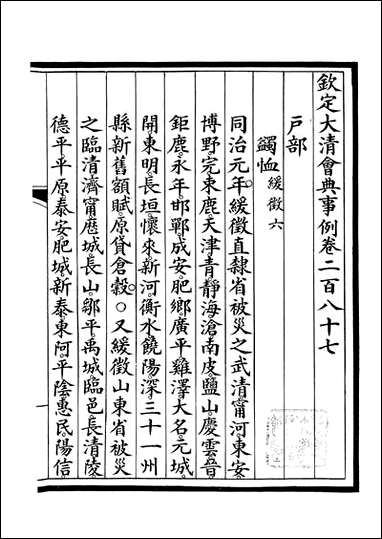 欽定大清會典事例卷二百八十七
戶部
蠲恤緩徵六
同治元年。緩徵直隸省被災之武清甯河東安
博野完束鹿天津青靜海滄南皮鹽山慶雲晉
鉅鹿永年邯鄲成安肥鄉廣平雞澤大名元城
開東明長垣懷來新河衡水饒陽深三十一州
縣新舊額賦。原貸倉穀。○又緩徵山東省被災
之臨清濟甯歷城長山鄒平禹城臨邑長清陵
德平平原泰安肥城新泰東阿平陰惠民陽信